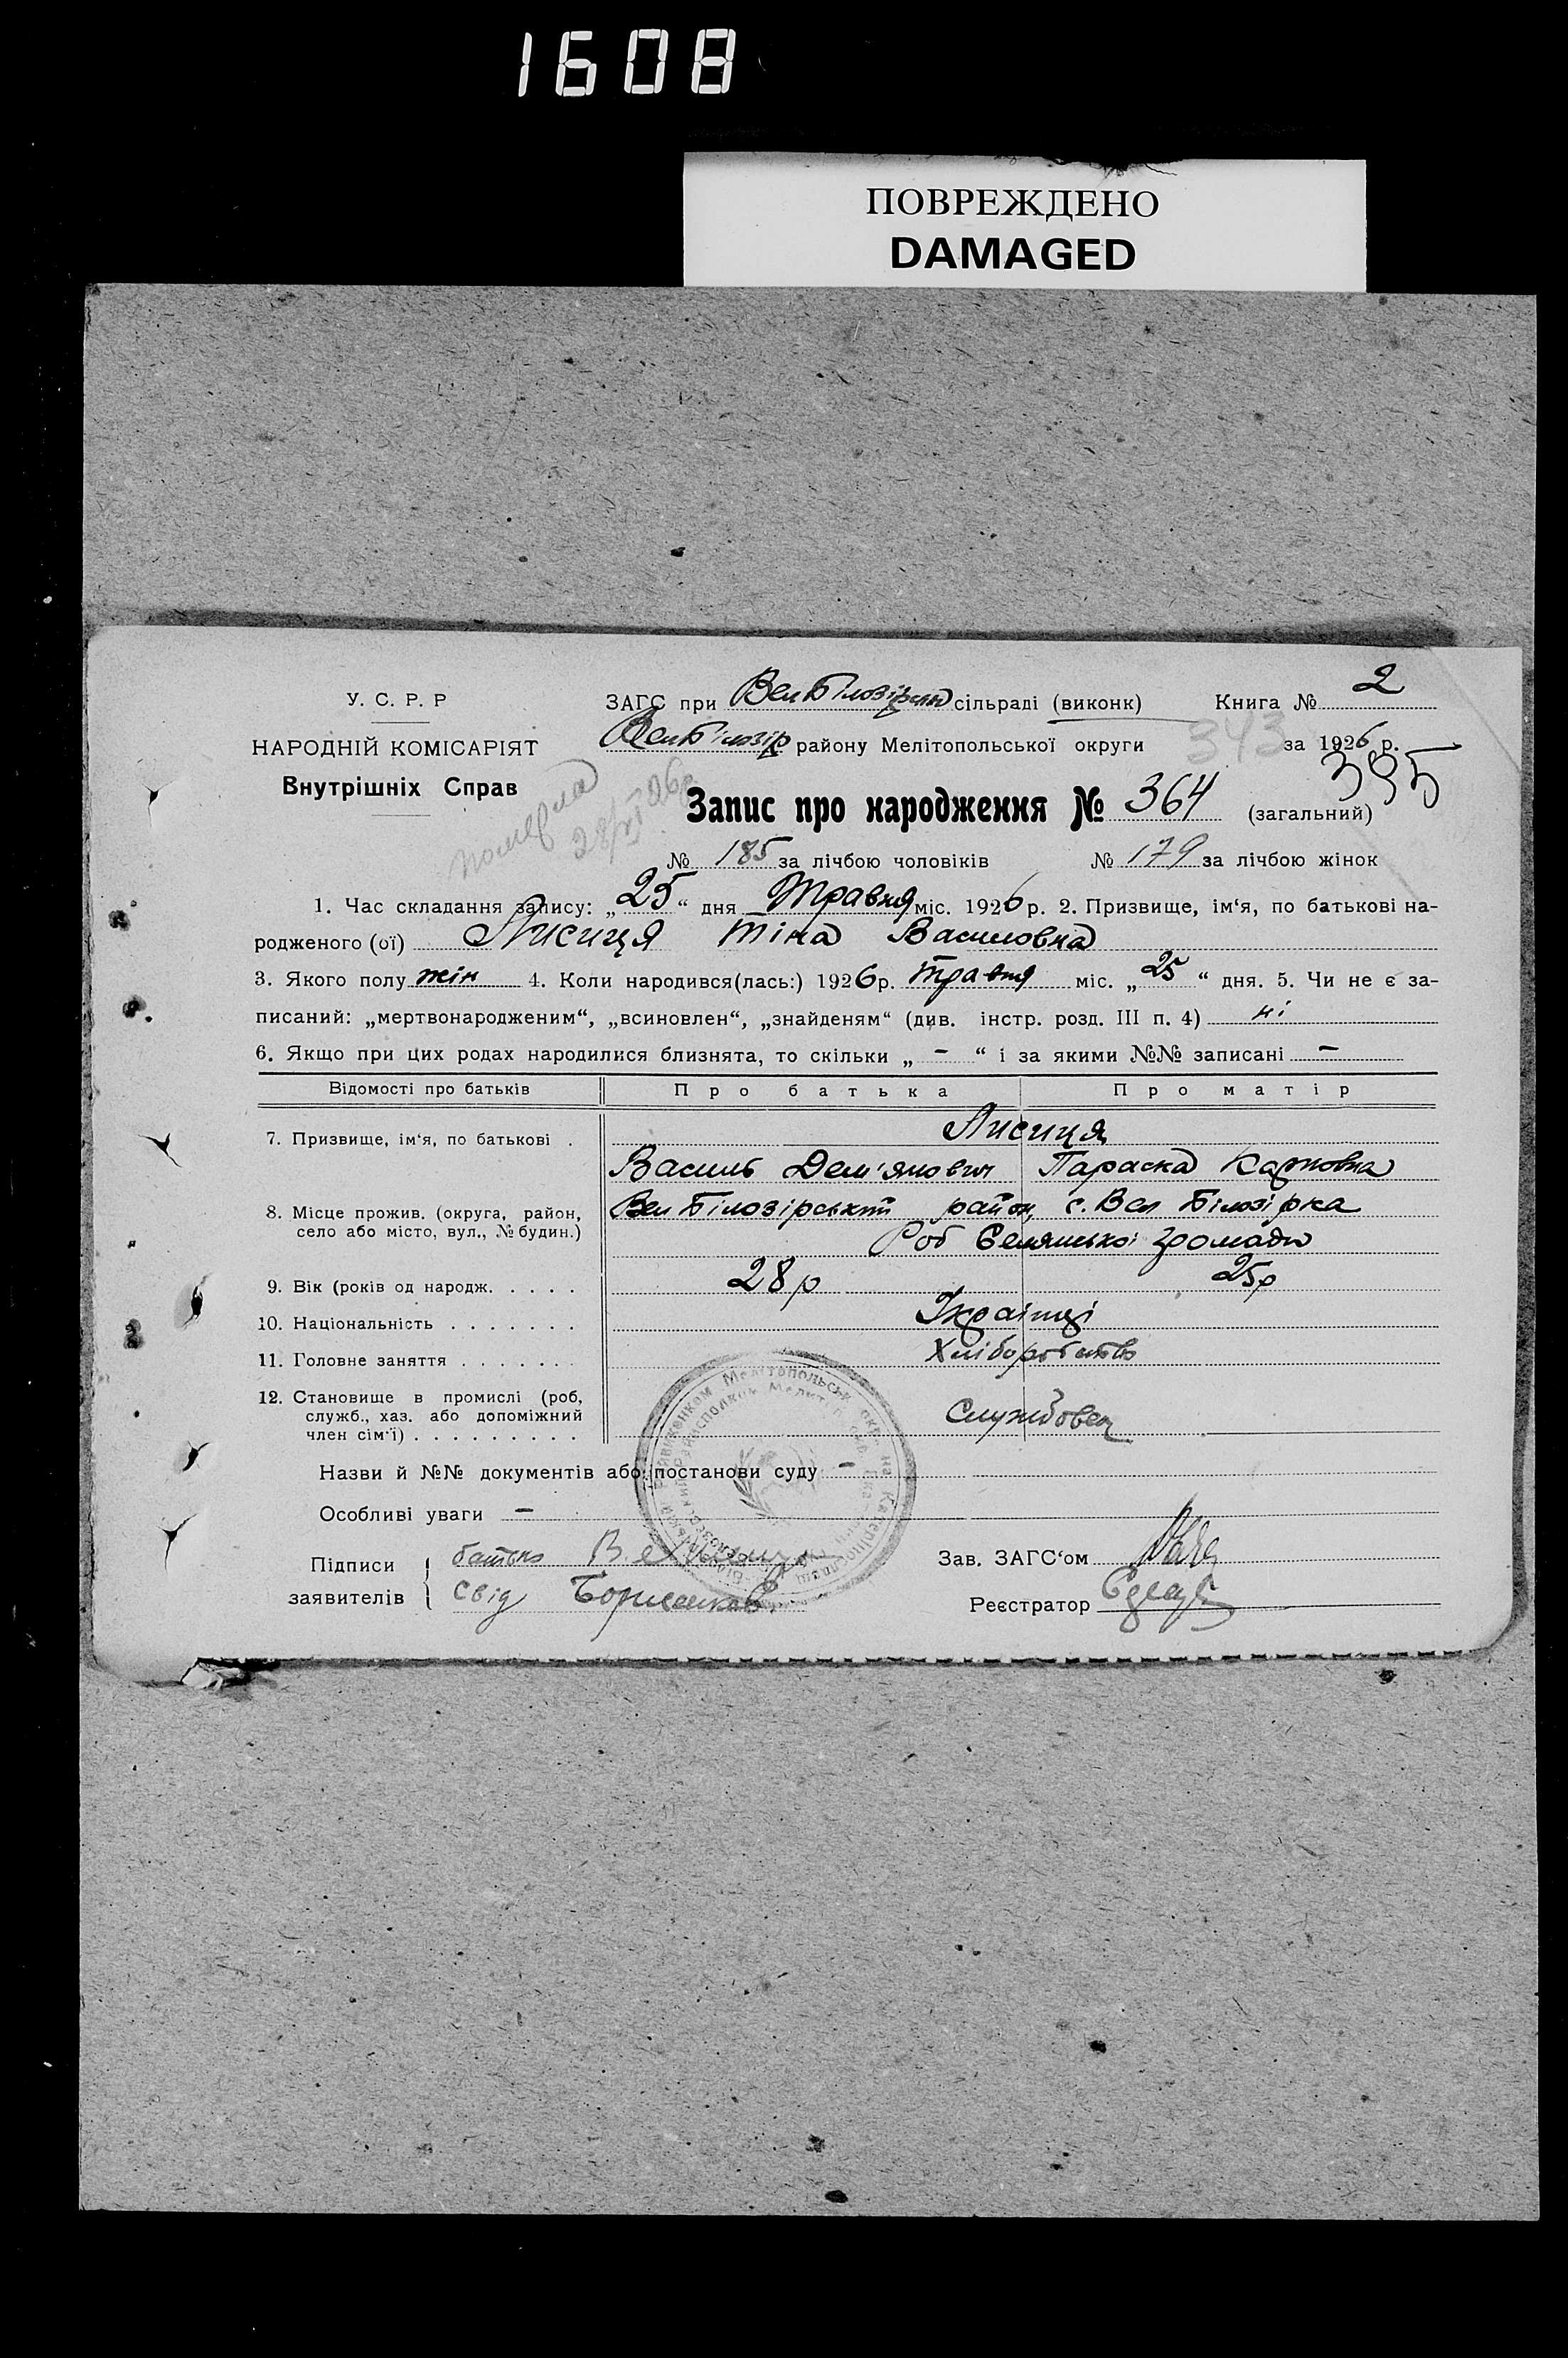 1608
ПОВРЕЖДЕНО
DAMAGED
У. С. Р. Р
ЗАГС при сільраді (виконк) Книга № 2
ВелБілозір району Мелітопольської округи 343 за 1926 р.
НАРОДНІЙ КОМІСАРІЯТ
Внутрішніх Справ
померла
Запис про народження № 364 (загальний)
№ 185 за лічбою чоловіків № 179 за лічбою жінок
1. Час складання запису: „25“ дня Травня міс. 1926 р. 2. Призвище, ім‘я, по батькові на-
родженого (ої) Лисиця Тіна Василовна
3. Якого полу жін 4. Коли народився(лась:) 1926р. Травня міс. „25“ дня. 5. Чи не є за-
писаний: „мертвонародженим“, „всиновлен“, „знайденям“ (див. інстр. розд. III п. 4) ні
6. Якщо при цих родах народилися близнята, то скільки „ - “ і за якими №№ записані -
Відомості про батьків Про батька Про матір
7. Призвище, ім‘я, по батькові . Лисиця
Василь Дем'янович Параска Карповна
8. Місце прожив. (округа, район, Вел Білозірський район, с. Вел Білозірка
село або місто, вул., № будин.) громади
9. Вік (років од народж. . . . . 28р 25р
10. Національність . . . . . . . Українці
11. Головне заняття . . . . . . . Хліборобство
12. Становище в промислі (роб,
служб., хаз. або допоміжний Службовец
член сім‘ї) . . . . . . . . .
Назви й №№ документів або постанови суду -
Особливі уваги -
Підписи батько Зав. ЗАГС‘ом
заявителів свід Реєстратор